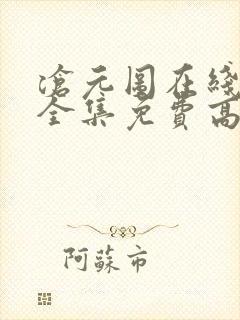 滄元图在线
全集免費高
阿蘇市